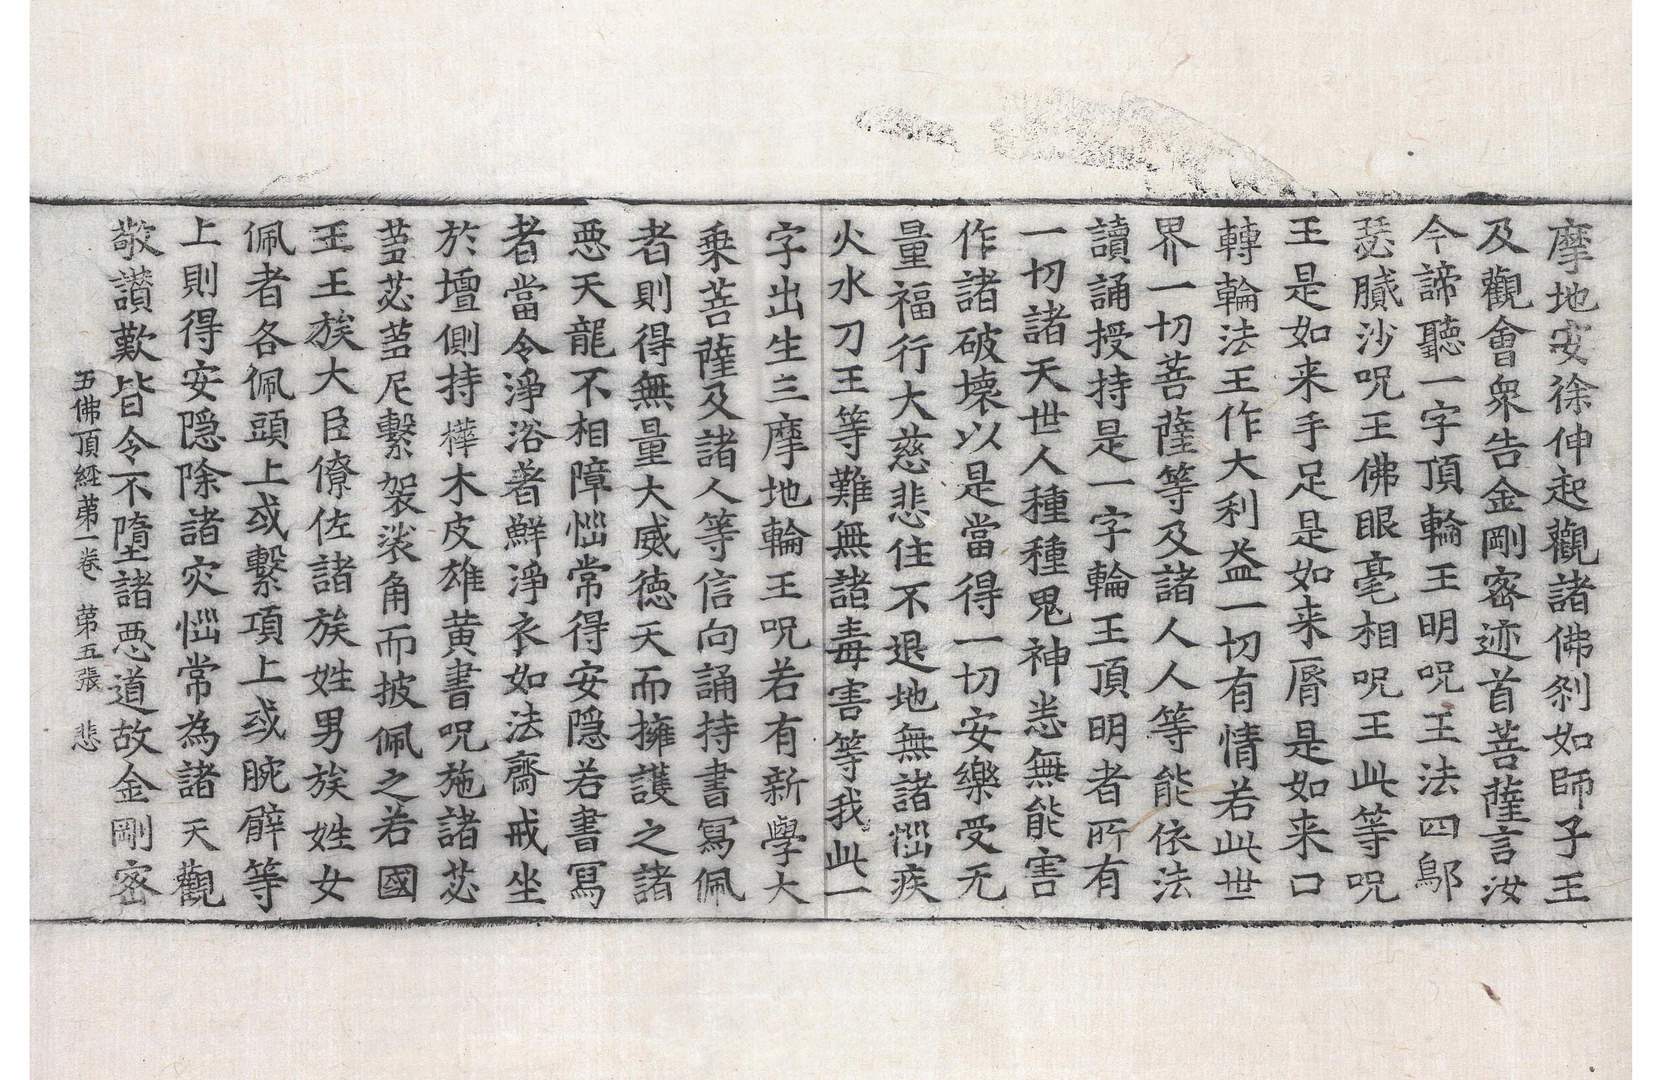 摩地安徐伸起觀諸佛剎如師子王
及觀會衆告金剛密迹首菩薩言汝
今諦聽一字頂輪王明呪王法四鄔
瑟膩沙呪王佛眼毫相呪王此等呪
王是如来手足是如来脣是如来口
轉輪法王作大利益一切有情若此世
界一切菩薩等及諸人人等能依法
讀誦授持是一字輪王頂明者所有
一切諸天世人種種鬼神悉無能害
作諸破壞以是當得一切安樂受无
量福行大慈悲住不退地無諸惱疾
火水刀王等難無諸毒害等我此一
字出生三摩地輪王呪若有新學大
乗菩薩及諸人等信向誦持書冩佩
者則得無量大威德天而擁護之諸
惡天龍不相障惱常得安隱若書冩
者當令淨浴著鮮淨衣如法齋戒坐
於壇側持樺木皮雄黃書呪施諸苾
蒭苾蒭尼繫袈裟角而披佩之若國
王王族大臣僚佐諸族姓男族姓女
佩者各佩頭上或繫項上或腕臂等
上則得安隐除諸灾惱常為諸天觀
敬讃歎皆令不墮諸惡道故金剛密
五佛頂經苐一卷 苐五張 悲